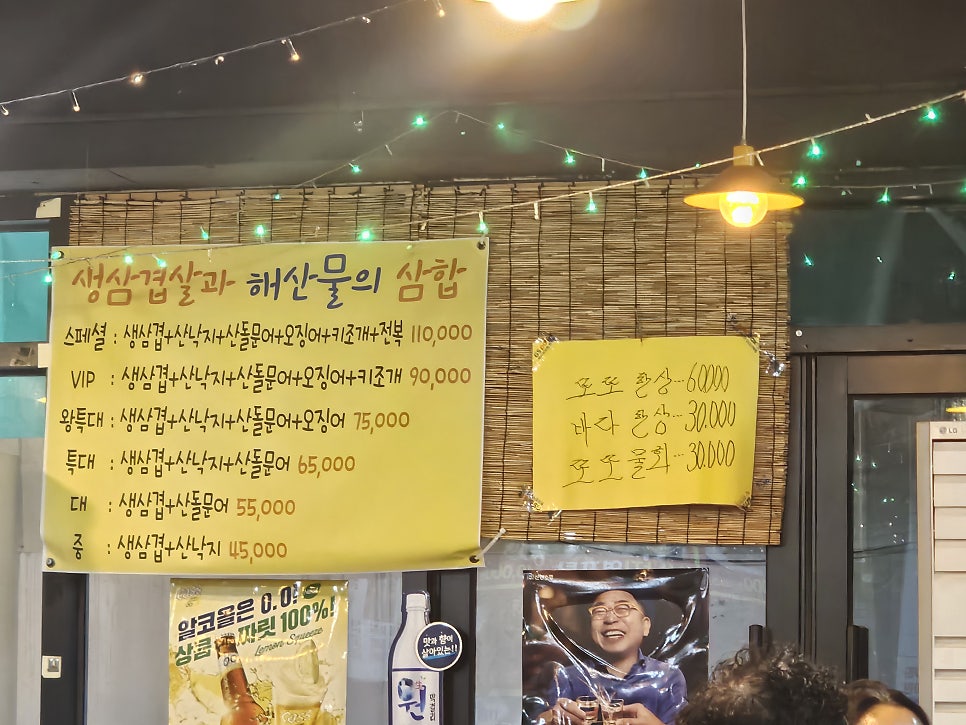 생삼겹살과 해산물의 삼합
스페셜 : 생삼겹+산낙지+산돌문어+오징어+키조개+전복 110,000
VIP : 생삼겹+산낙지+산돌문어+오징어+키조개 90,000
왕특대 : 생삼겹+산낙지+산돌문어+오징어 75,000
특대 : 생삼겹+산낙지+산돌문어 65,000
대 : 생삼겹+산돌문어 55,000
중 : 생삼겹+산낙지 45,000
또또 한상...60000
바다 한상...30.000
또또물회...30.000
LG
알코올은 0.0!
상큼 짜릿 100%!
Lemon Squeeze
맛과 향이
살아있는!!
원